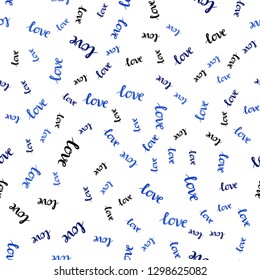 love love love love love love love
love love love love love love love
love love love love love love love
love love love love love love love
love love love love love love love
love love love love love love love
love love love love love love love
love love love love love love love
love love love love love love love
love love love love love love love
shutterstock.com · 1298625082